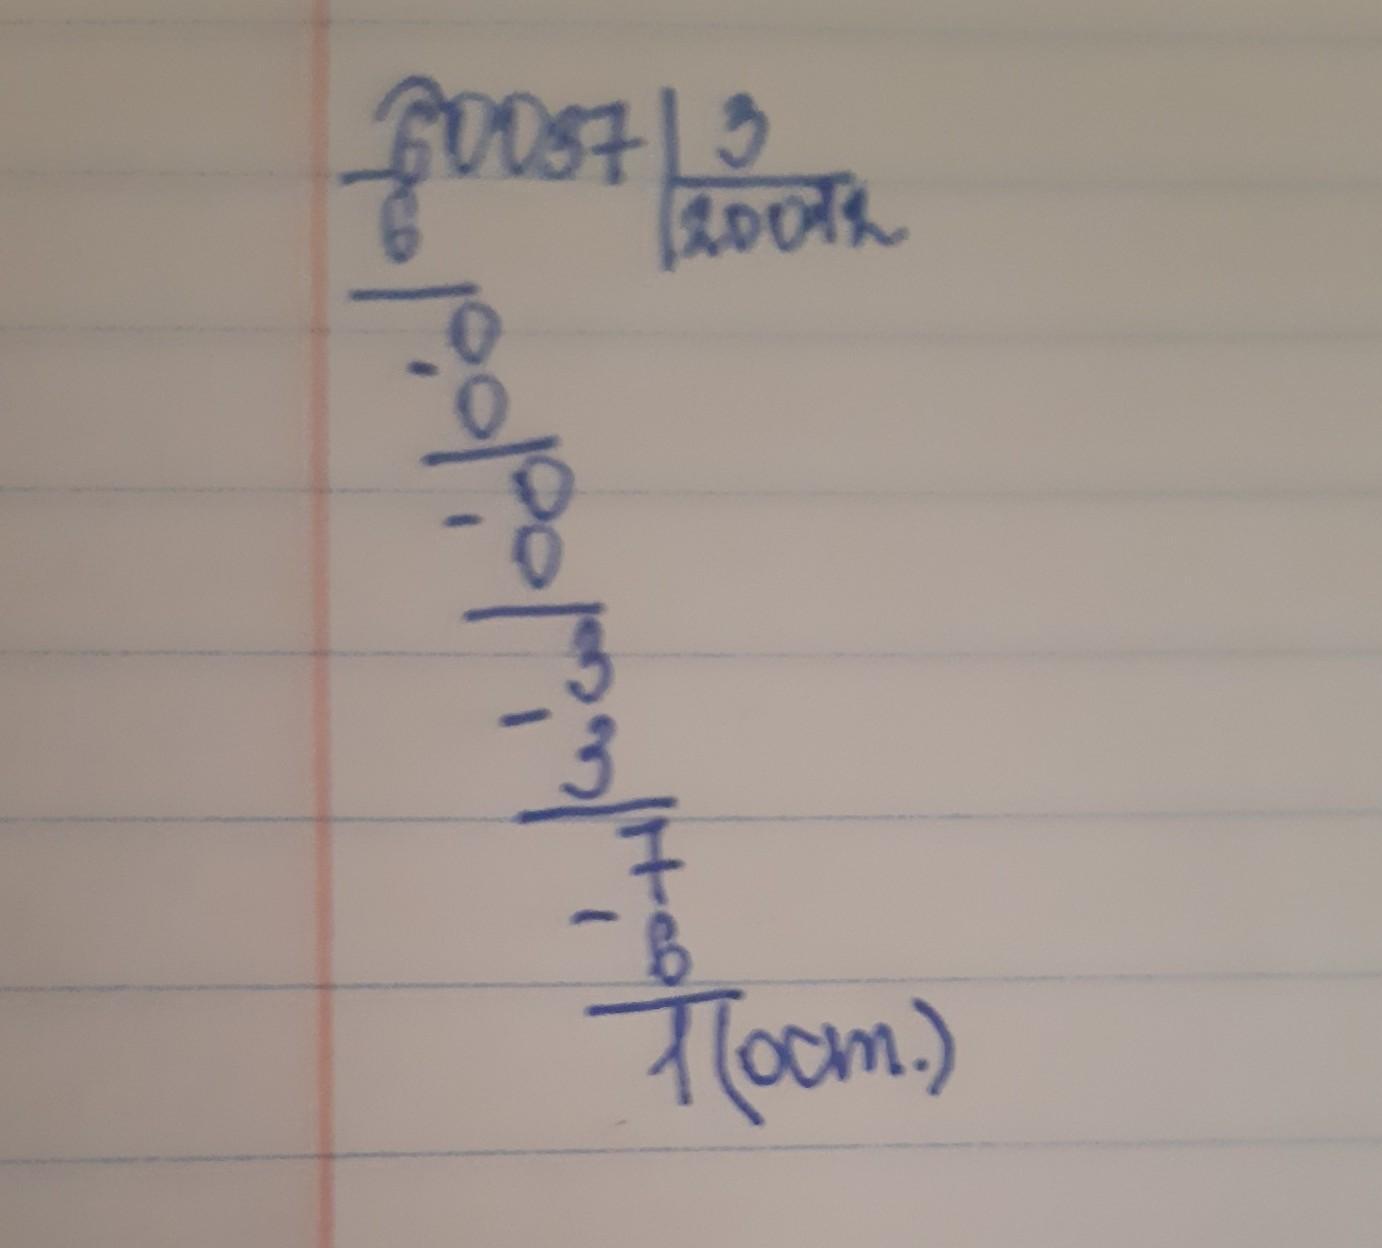 60037 | 3
- 6 | 20012
0
- 0
0
- 0
3
- 3
7
- 6
1 (ост.)